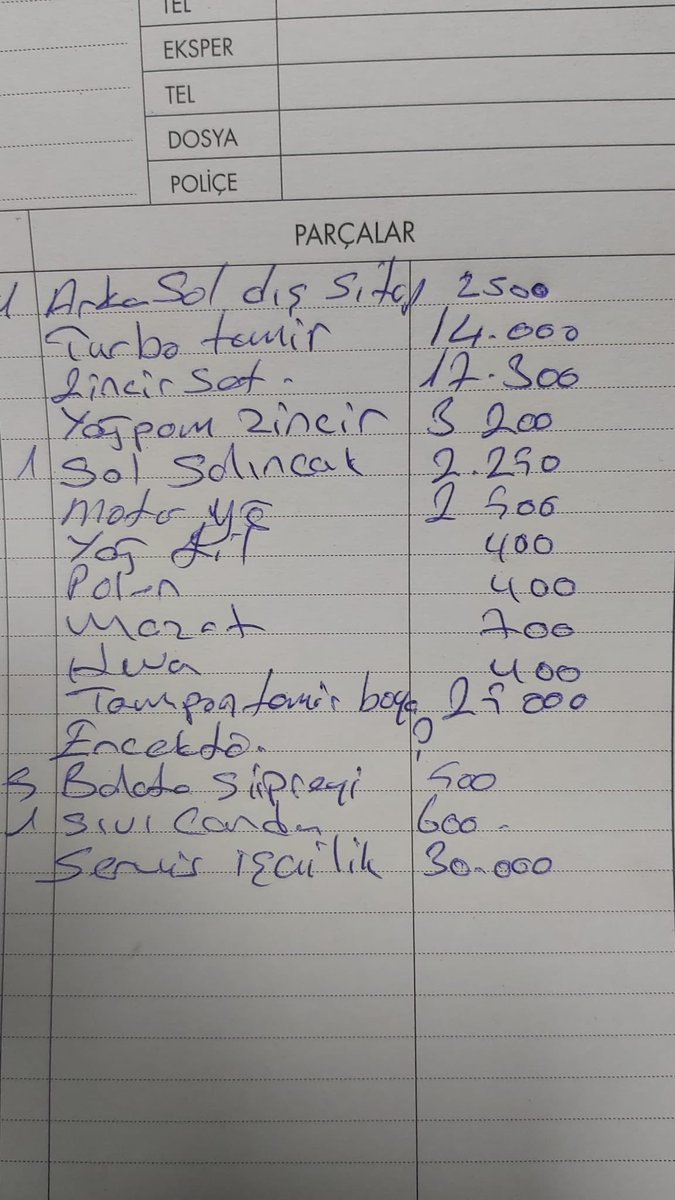 TEL
EKSPER
TEL
DOSYA
POLİÇE
PARÇALAR
1 Arka Sol dış Sitop 2500
Turbo tamir 14.000
Zincir Set. 17.300
Yağ pom zincir 3 200
1 Sol Salıncak 2.250
Motor yğ 2 500
Yağ fit 400
Polen 400
Mazot 700
Hwa 400
Tampon tamir boya 25 000
Encekdö. ?
3 Balata Sipreyi 500
1 Sıvı Conda 600 -
Servis işçilik 30.000